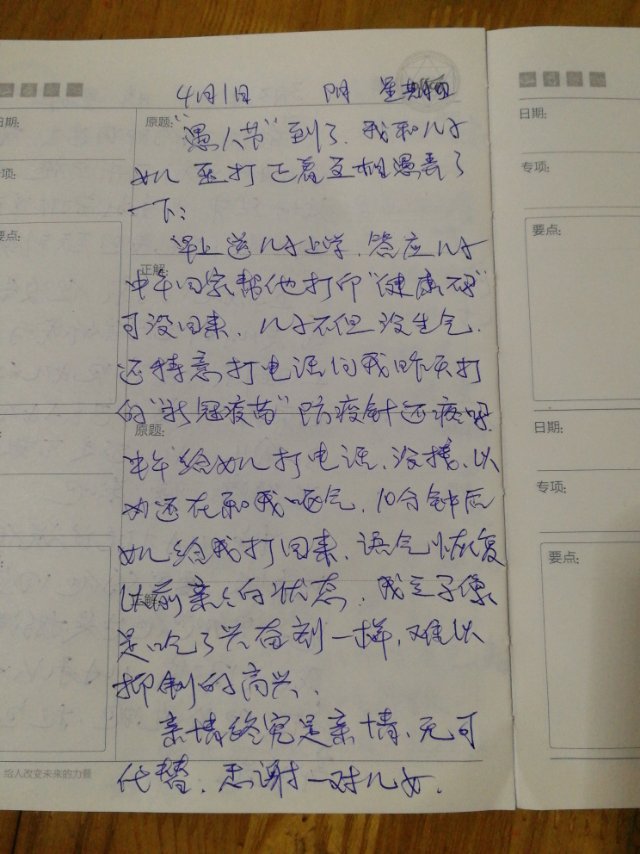 4月1日 阴 星期四
日期:
原题:
日期:
"愚人节"到了、我和儿子
专项:
专项:
女儿 正着互相愚弄了
一下:
要点:
要点:
早上送儿子上学、答应儿子
正解:
中午回家帮他打印"健康码"
可没回来、儿子不但没生气、
还特意打电话问我昨天打
的"新冠疫苗"防疫针还疼吗.
原题:
日期:
中午给女儿打电话、没接、以
为还在和我呕气、10分钟后
专项:
女儿给我打回来、语气恢复
要点:
以前亲亲的状态、我立子像
正解:
是吃了兴奋剂一样、难以
抑制的高兴、
亲情终究是亲情、无可
给人改变未来的力量
代替、感谢一对儿女.